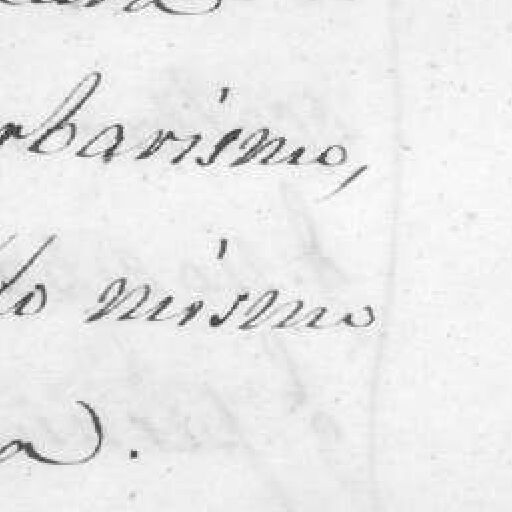 rbarismo,
lo mismo
a.